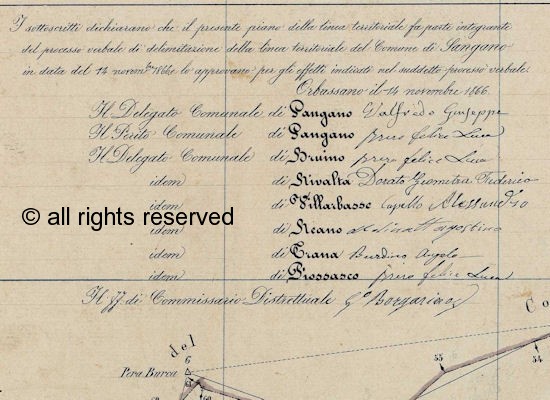 I sottoscritti dichiarano che il presente piano della linea territoriale fa parte integrante
del processo verbale di delimitazione della linea territoriale del Comune di Sangano
in data del 14 novembre 1866 e lo approvano per gli effetti indicati nel suddetto processo verbale.
Orbassano il 14 novembre 1866.
Il Delegato Comunale di Sangano Valfrèdo Giuseppe
Il Perito Comunale di Sangano felice Luca
Il Delegato Comunale di Bruino felice Luca
idem di Rivalta Dorato Geometra Federico
idem di Villarbasse Capello Alessandro
© all rights reserved
idem di Reano Agostino
idem di Trana Burdino Angelo
idem di Piossasco felice Luca
Il ff. di Commissario Distrettuale G. Borgarino
del Co
Pera Burca 6
55 54
60